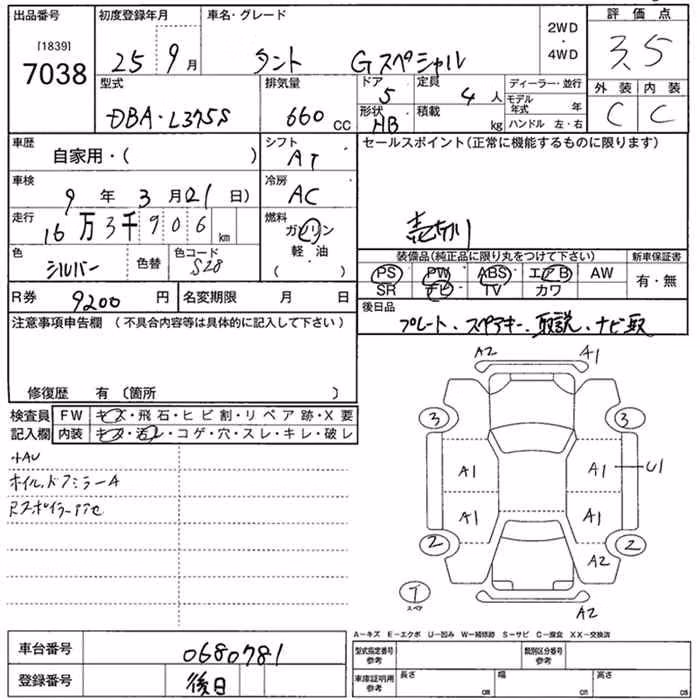 出品番号 初度登録年月 車名・グレード 評価点
[1839] 7038 25 9月 タント Gスペシャル 2WD・4WD 3.5
型式 排気量 ドア 5 定員 4人 ディーラー・並行 外装 内装
DBA・L375S 660cc 形状 HB 積載 kg モデル年式 年 ハンドル 左・右 C C
車歴 自家用・( ) シフト AT セールスポイント(正常に機能するものに限ります)
車検 9年3月21日) 冷房 AC
走行 16万3千906km 燃料 ガソリン
軽油
・
( )
色 シルバー 色替 色コード S28 装備品(純正品に限り丸をつけて下さい) 新車保証書
PS PW ABS エアB AW 有・無
SR ナビ TV カワ
R券 9200円 名変期限 月 日 後日品
注意事項申告欄 (不具合内容等は具体的に記入して下さい) プレート、スペアキー、取説、ナビ取
修復歴 有 〔箇所 〕
検査員 FW キズ・飛石・ヒビ割・リペア跡・X要
記入欄 内装 キズ・汚レ・コゲ・穴・スレ・キレ・破レ
小AU
ホイル、ドアミラーA
A2 A1
3 3
A1 A1 U1
A1 A1
2 2
A2
T
スペア
A2
A−キズ E−エクボ U−凹み W−補修跡 S−サビ C−腐食 XX−交換済
車台番号 0680781 型式指定番号 参考 類別区分番号 参考
登録番号 後日 車庫証明用 参考 長さ cm 幅 cm 高さ cm